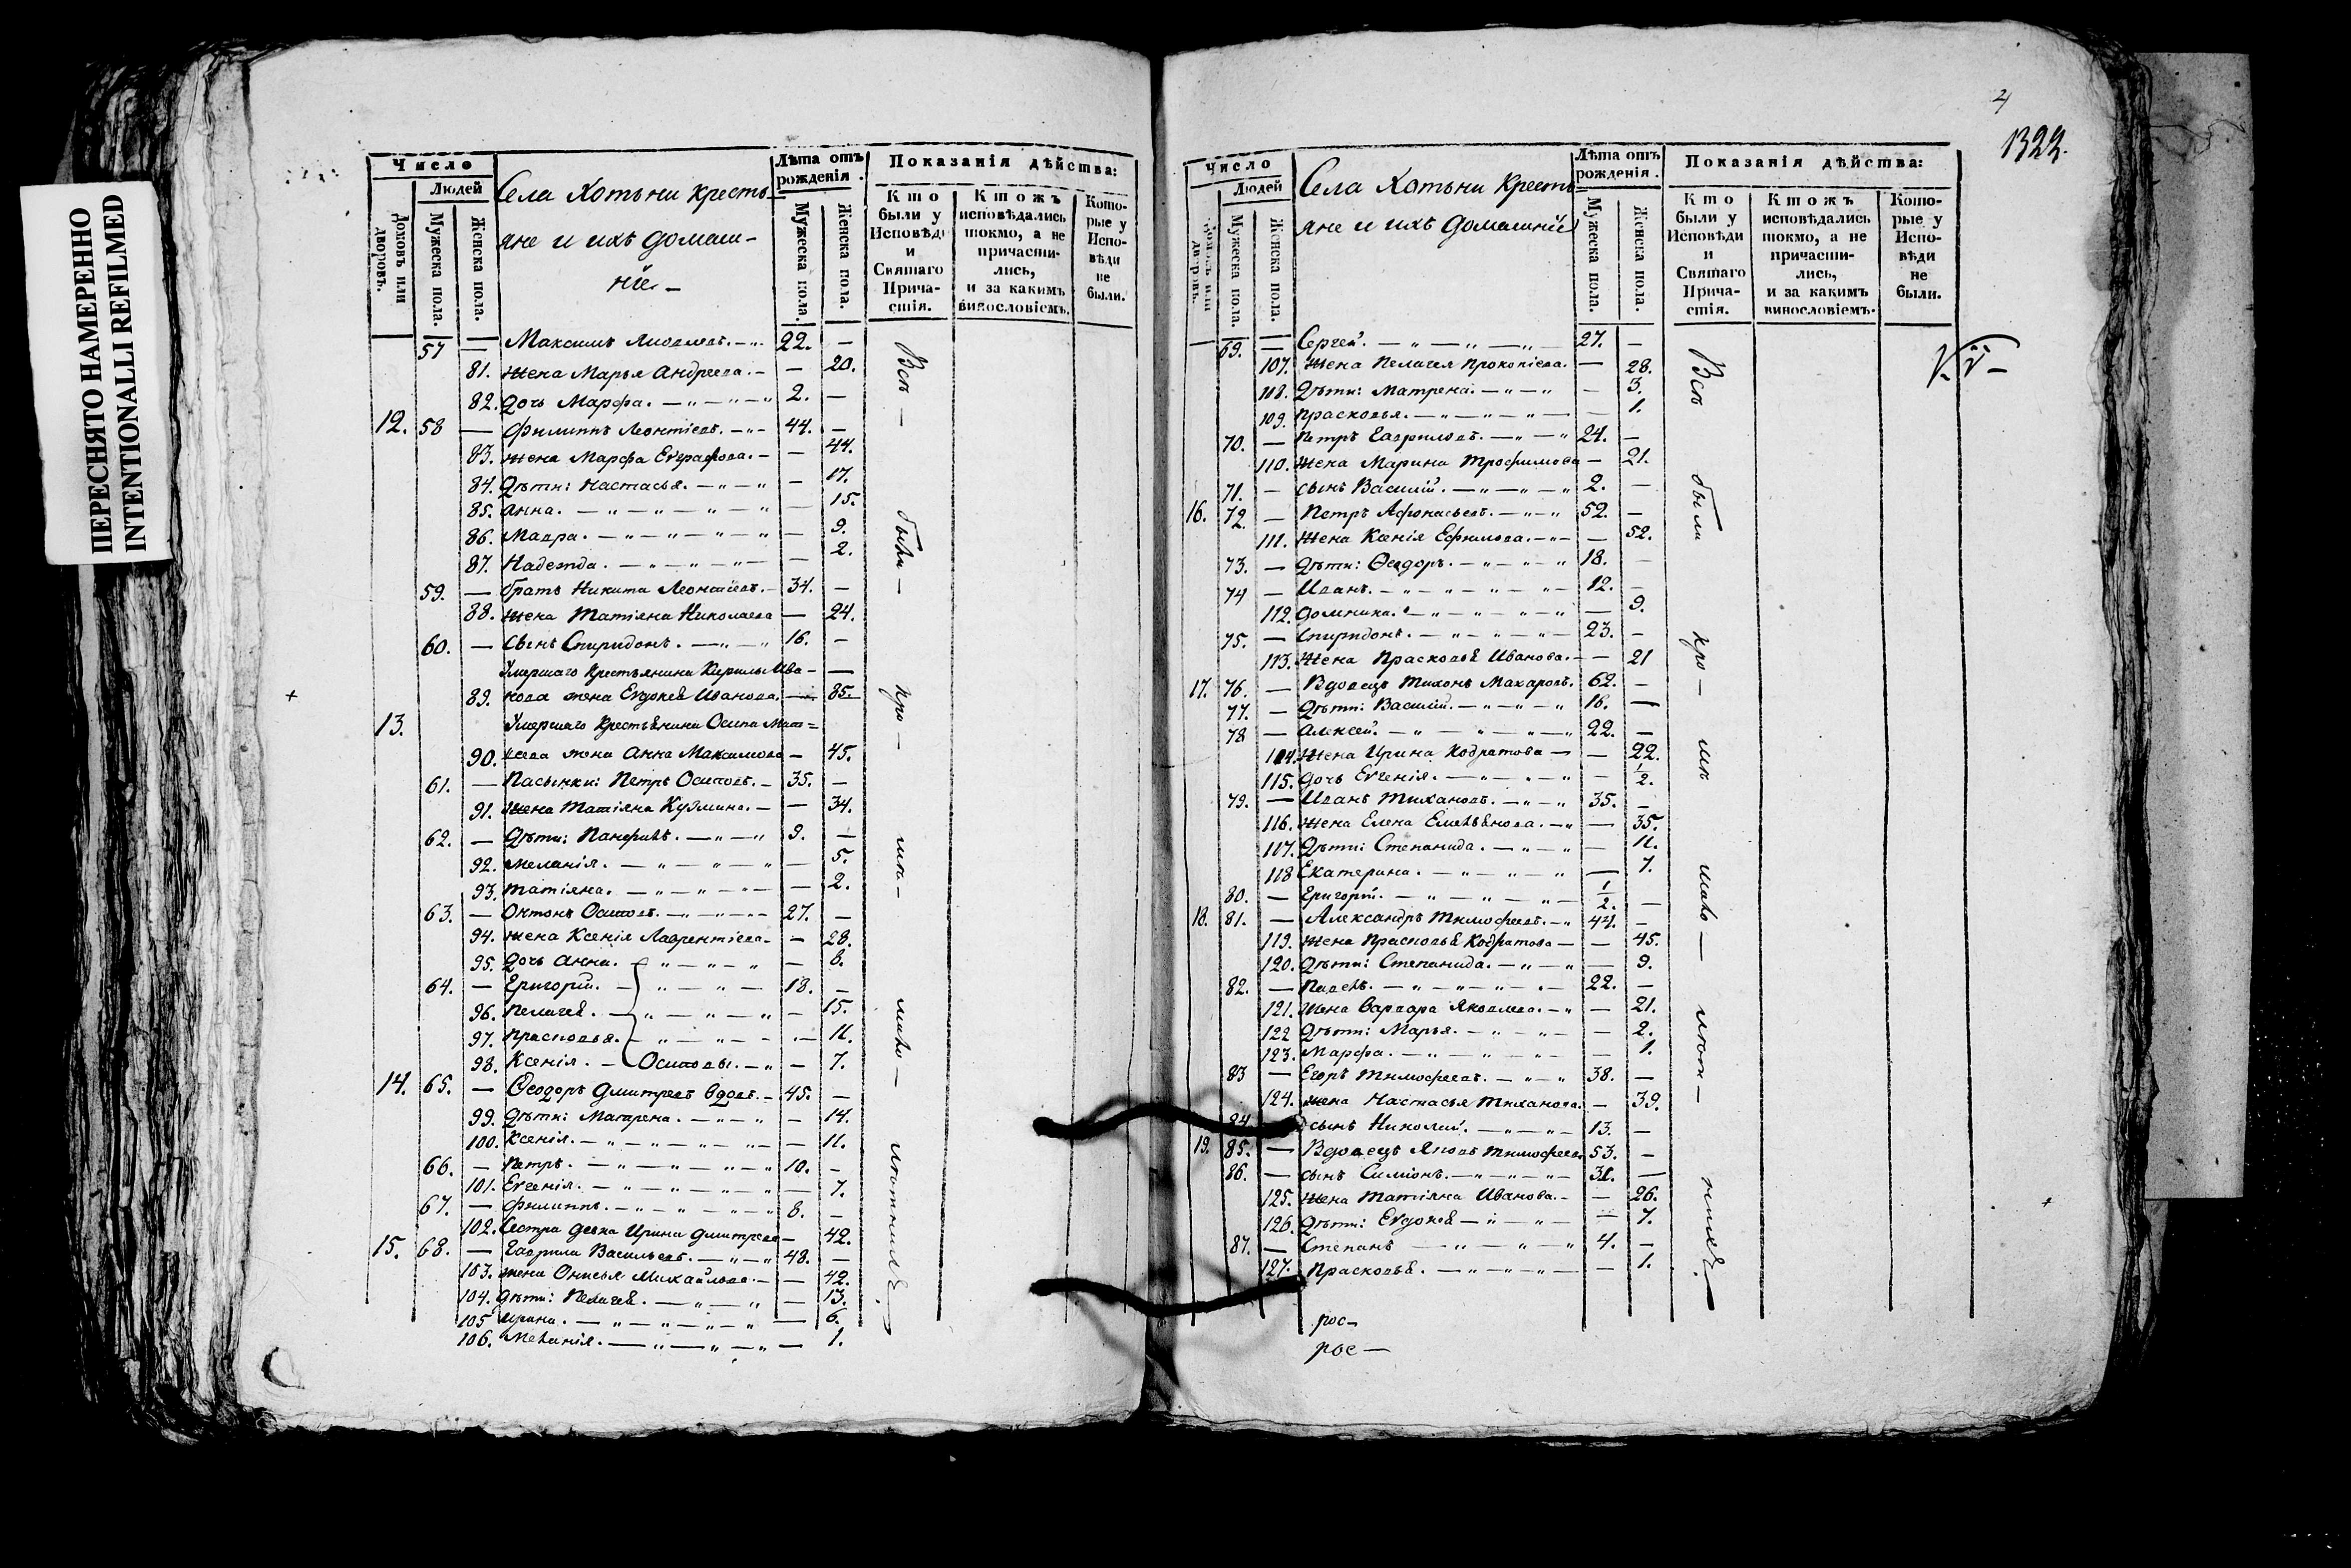 ПЕРЕСНЯТО НАМЕРЕННО
INTENTIONALLI REFILMED
Число
Людей
Домовъ или дворовъ.
Мужеска пола.
Женска пола.
Села Хотьни кресть=
яне и ихъ домаш-
ніе. -
Лѣта отъ рожденія.
Мужеска пола.
Женска пола.
Показанія дѣйства:
Кто были у Исповѣди и Святаго Прича-стія.
Ктожъ исповѣдались токмо, а не причасти-лись, и за какимъ винословіемъ.
Кото-рые у Испо-вѣди не были.
57 — Максимъ 22. —
81. жена Марья Андреева. — — 20.
82. дочь Марфа. 2. —
12. 58 — Филиппъ Леонтіевъ. 44. —
83. жена Марфа Евграфова. — — 44.
84. дѣти: Настасья. — 17.
85. Анна. — 15.
86. Мавра. — 9.
87. Надежда. — 2.
59. — братъ Никита Леонтіевъ. 34. —
88. жена Татіяна Николаева — 24.
60. — сынъ Спиридонъ. 16. —
Умершаго крестьянина Кирилы Ива-
89. нова жена Евдокея Иванова. — 85
13. Умершаго крестьянина Осипа Мат=
90. веева жена Анна Максимова — 45.
61. — Пасынки: Петръ Осиповъ. 35. —
91. жена Татіяна Кузмина. — 34.
62. — дѣти: Панфилъ. 9. —
92. Меланія. — 5.
93. Татіяна. — 2.
63. — Онтонъ Осиповъ. 27. —
94. жена Ксенія Лаврентіева — 28.
95. дочь Анна. — 6.
64. — Григорій. 18. —
96. Пелагея. — 15.
97. Прасковья. — 11.
98. Ксенія. — Осиповы. — 7.
14. 65. — Ѳеодоръ Дмитревъ вдовъ. 45. —
99. дѣти: Матрена. — 14.
100. Ксенія. — 11.
66. — Петръ. 10. —
101. Евгенія. — 7.
67. — Филиппъ. 8. —
102. Сестра девка Ирина Дмитрева — 42.
15. 68. — Гаврила Васильевъ. 48. —
103. жена Онисья Михайлова. — 42.
104. дѣти: Пелагея. — 13.
105 Ирина. — 6.
106. Меланія. — 1.
Всѣ — были —
4
1322.
Число
Людей
Домовъ или дворовъ.
Мужеска пола.
Женска пола.
Села Хотьни кресть=
яне и ихъ домашніе
Лѣта отъ рожденія.
Мужеска пола.
Женска пола.
Показанія дѣйства:
Кто были у Исповѣди и Святаго Прича-стія.
Ктожъ исповѣдались токмо, а не причасти-лись, и за какимъ винословіемъ.
Кото-рые у Испо-вѣди не были.
69. — Сергей. 27. —
107. жена Пелагея Прокопіева. — 28.
108. дѣти: Матрена. — 3.
109. Прасковья. — 1.
70. — Петръ Гавриловъ. 24. —
110. жена Марина Трофимова — 21.
71. — сынъ Василій. 2. —
16. 72. — Петръ Афонасьевъ. 52. —
111. жена Ксенія Ефимова. — 52.
73. — дѣти: Ѳеодоръ. 18. —
74 — Иванъ. 12. —
112. Домника. — 9.
75. — Спиридонъ. 23. —
113. жена Прасковья Иванова. — 21
17. 76. — Вдовецъ Тихонъ Макаровъ. 62. —
77. — дѣти: Василій. 16. —
78 — Алексей. 22. —
114. жена Ирина Кодратова — 22.
115. дочь Евгенія. — 1/2.
79. — Иванъ Тихановъ. 35. —
116. жена Елена Емельянова. — 35.
117. дѣти: Степанида. — 11.
118 Екатерина. — 7.
80. — Григорій. 1/2. —
18. 81. — Александръ Тимофеевъ. 44. —
119. жена Прасковья Кодратова — 45.
120. дѣти: Степанида. — 9.
82. — Павелъ. 22. —
121. жена Варвара Яковлева. — 21.
122 дѣти: Марья. — 2.
123. Марфа. — 1.
83 — Егоръ Тимофеевъ. 38. —
124. жена Настасья Тиханова. — 39.
84 сынъ Николай. 13. —
19. 85. — Вдовецъ Яковъ Тимофеевъ 53. —
86. — сынъ Симіонъ. 31. —
125. жена Татіяна Иванова. — 26.
126. дѣти: Евдокея — 7.
87. — Степанъ 4. —
127. Прасковья. — 1.
Всѣ были
рос-
рос —